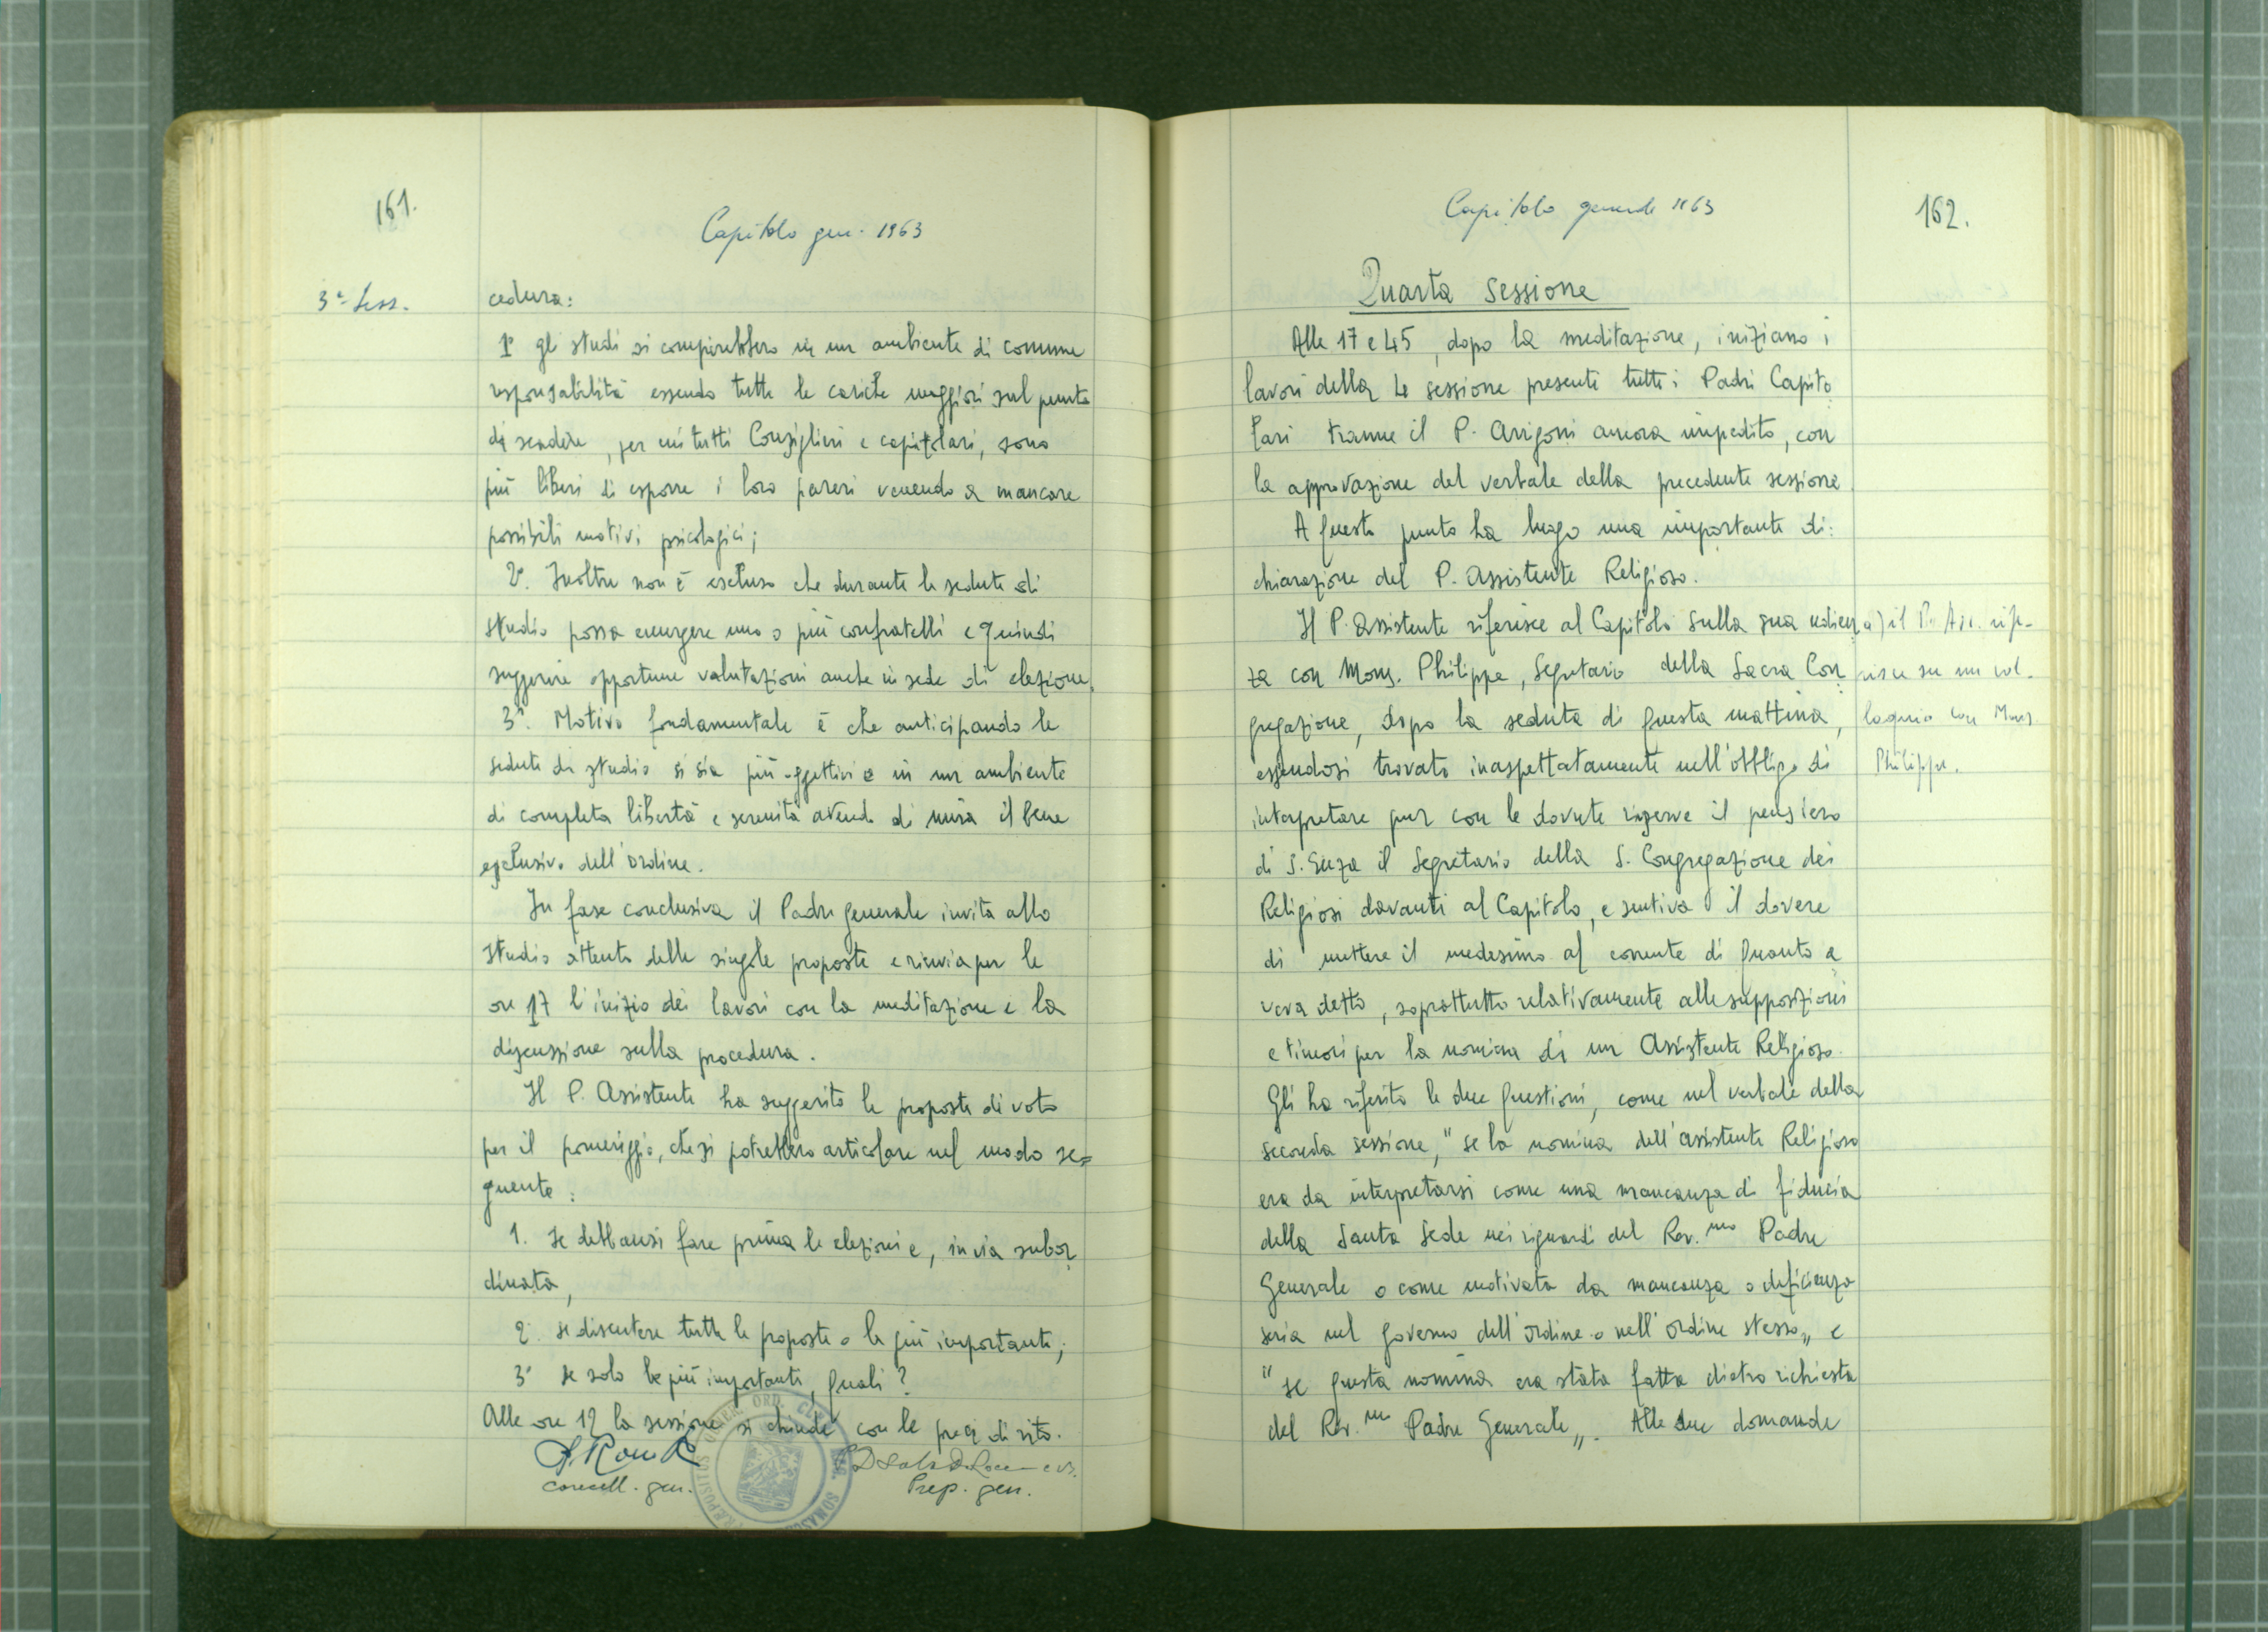 161.
Capitolo gen. 1963
3ª Sess.
cedura:
1º gli studi si compirebbero in un ambiente di comune
responsabilità essendo tutte le cariche maggiori sul punto
di scadere, per cui tutti Consiglieri e capitolari, sono
più liberi di esporre i loro pareri venendo a mancare
possibili motivi psicologici;
2º. Inoltre non è escluso che durante le sedute di
studio possa emergere uno o più confratelli e quindi
suggerire opportune valutazioni anche in sede di elezione.
3º. Motivo fondamentale è che anticipando le
sedute di studio si sia più oggettivi e in un ambiente
di completa libertà e serenità avendo di mira il bene
esclusivo dell'ordine.
In fase conclusiva il Padre generale invita allo
studio attento delle singole proposte e rinvia per le
ore 17 l'inizio dei lavori con la meditazione e la
discussione sulla procedura.
Il P. Assistente ha suggerito le proposte di voto
per il pomeriggio, che si potrebbero articolare nel modo se=
guente:
1. se debbansi fare prima le elezioni e, in via subor
dinata,
2. se discutere tutte le proposte o le più importanti;
3º se solo le più importanti, quali?
Alle ore 12 la sessione si chiude con le preci di rito.
cancell. gen.
Prep. gen.
PRÆPOSITUS GENER. ORD. CLER. REG. SOMASC
Capitolo generale 1963
162.
Quarta Sessione
Alle 17 e 45, dopo la meditazione, iniziano i
lavori della 4 sessione presenti tutti i Padri Capito
lari tranne il P. Arrigoni ancora impedito, con
la approvazione del verbale della precedente sessione.
A questo punto ha luogo una importante di:
chiarazione del P. Assistente Religioso.
Il P. Assistente riferisce al Capitolo sulla sua udien
za con Mons. Philippe, Segretario della Sacra Con
gregazione, dopo la seduta di questa mattina,
essendosi trovato inaspettatamente nell'obbligo di
interpretare pur con le dovute riserve il pensiero
di S. Enza il Segretario della S. Congregazione dei
Religiosi davanti al Capitolo, e sentiva il dovere
di mettere il medesimo al corrente di quanto a
veva detto, soprattutto relativamente alle supposizioni
e timori per la nomina di un Assistente Religioso.
Gli ha riferito le due questioni, come nel verbale della
seconda sessione, "se la nomina dell'assistente Religioso
era da interpretarsi come una mancanza di fiducia
della Santa Sede nei riguardi del Rev.mo Padre
Generale o come motivata da mancanza o deficienza
seria nel governo dell'ordine o nell'ordine stesso" e
"se questa nomina era stata fatta dietro richiesta
del Rev.mo Padre Generale". Alle due domande
a) il P. Ass. rife-
risce su un col-
loquio con Mons.
Philippe.